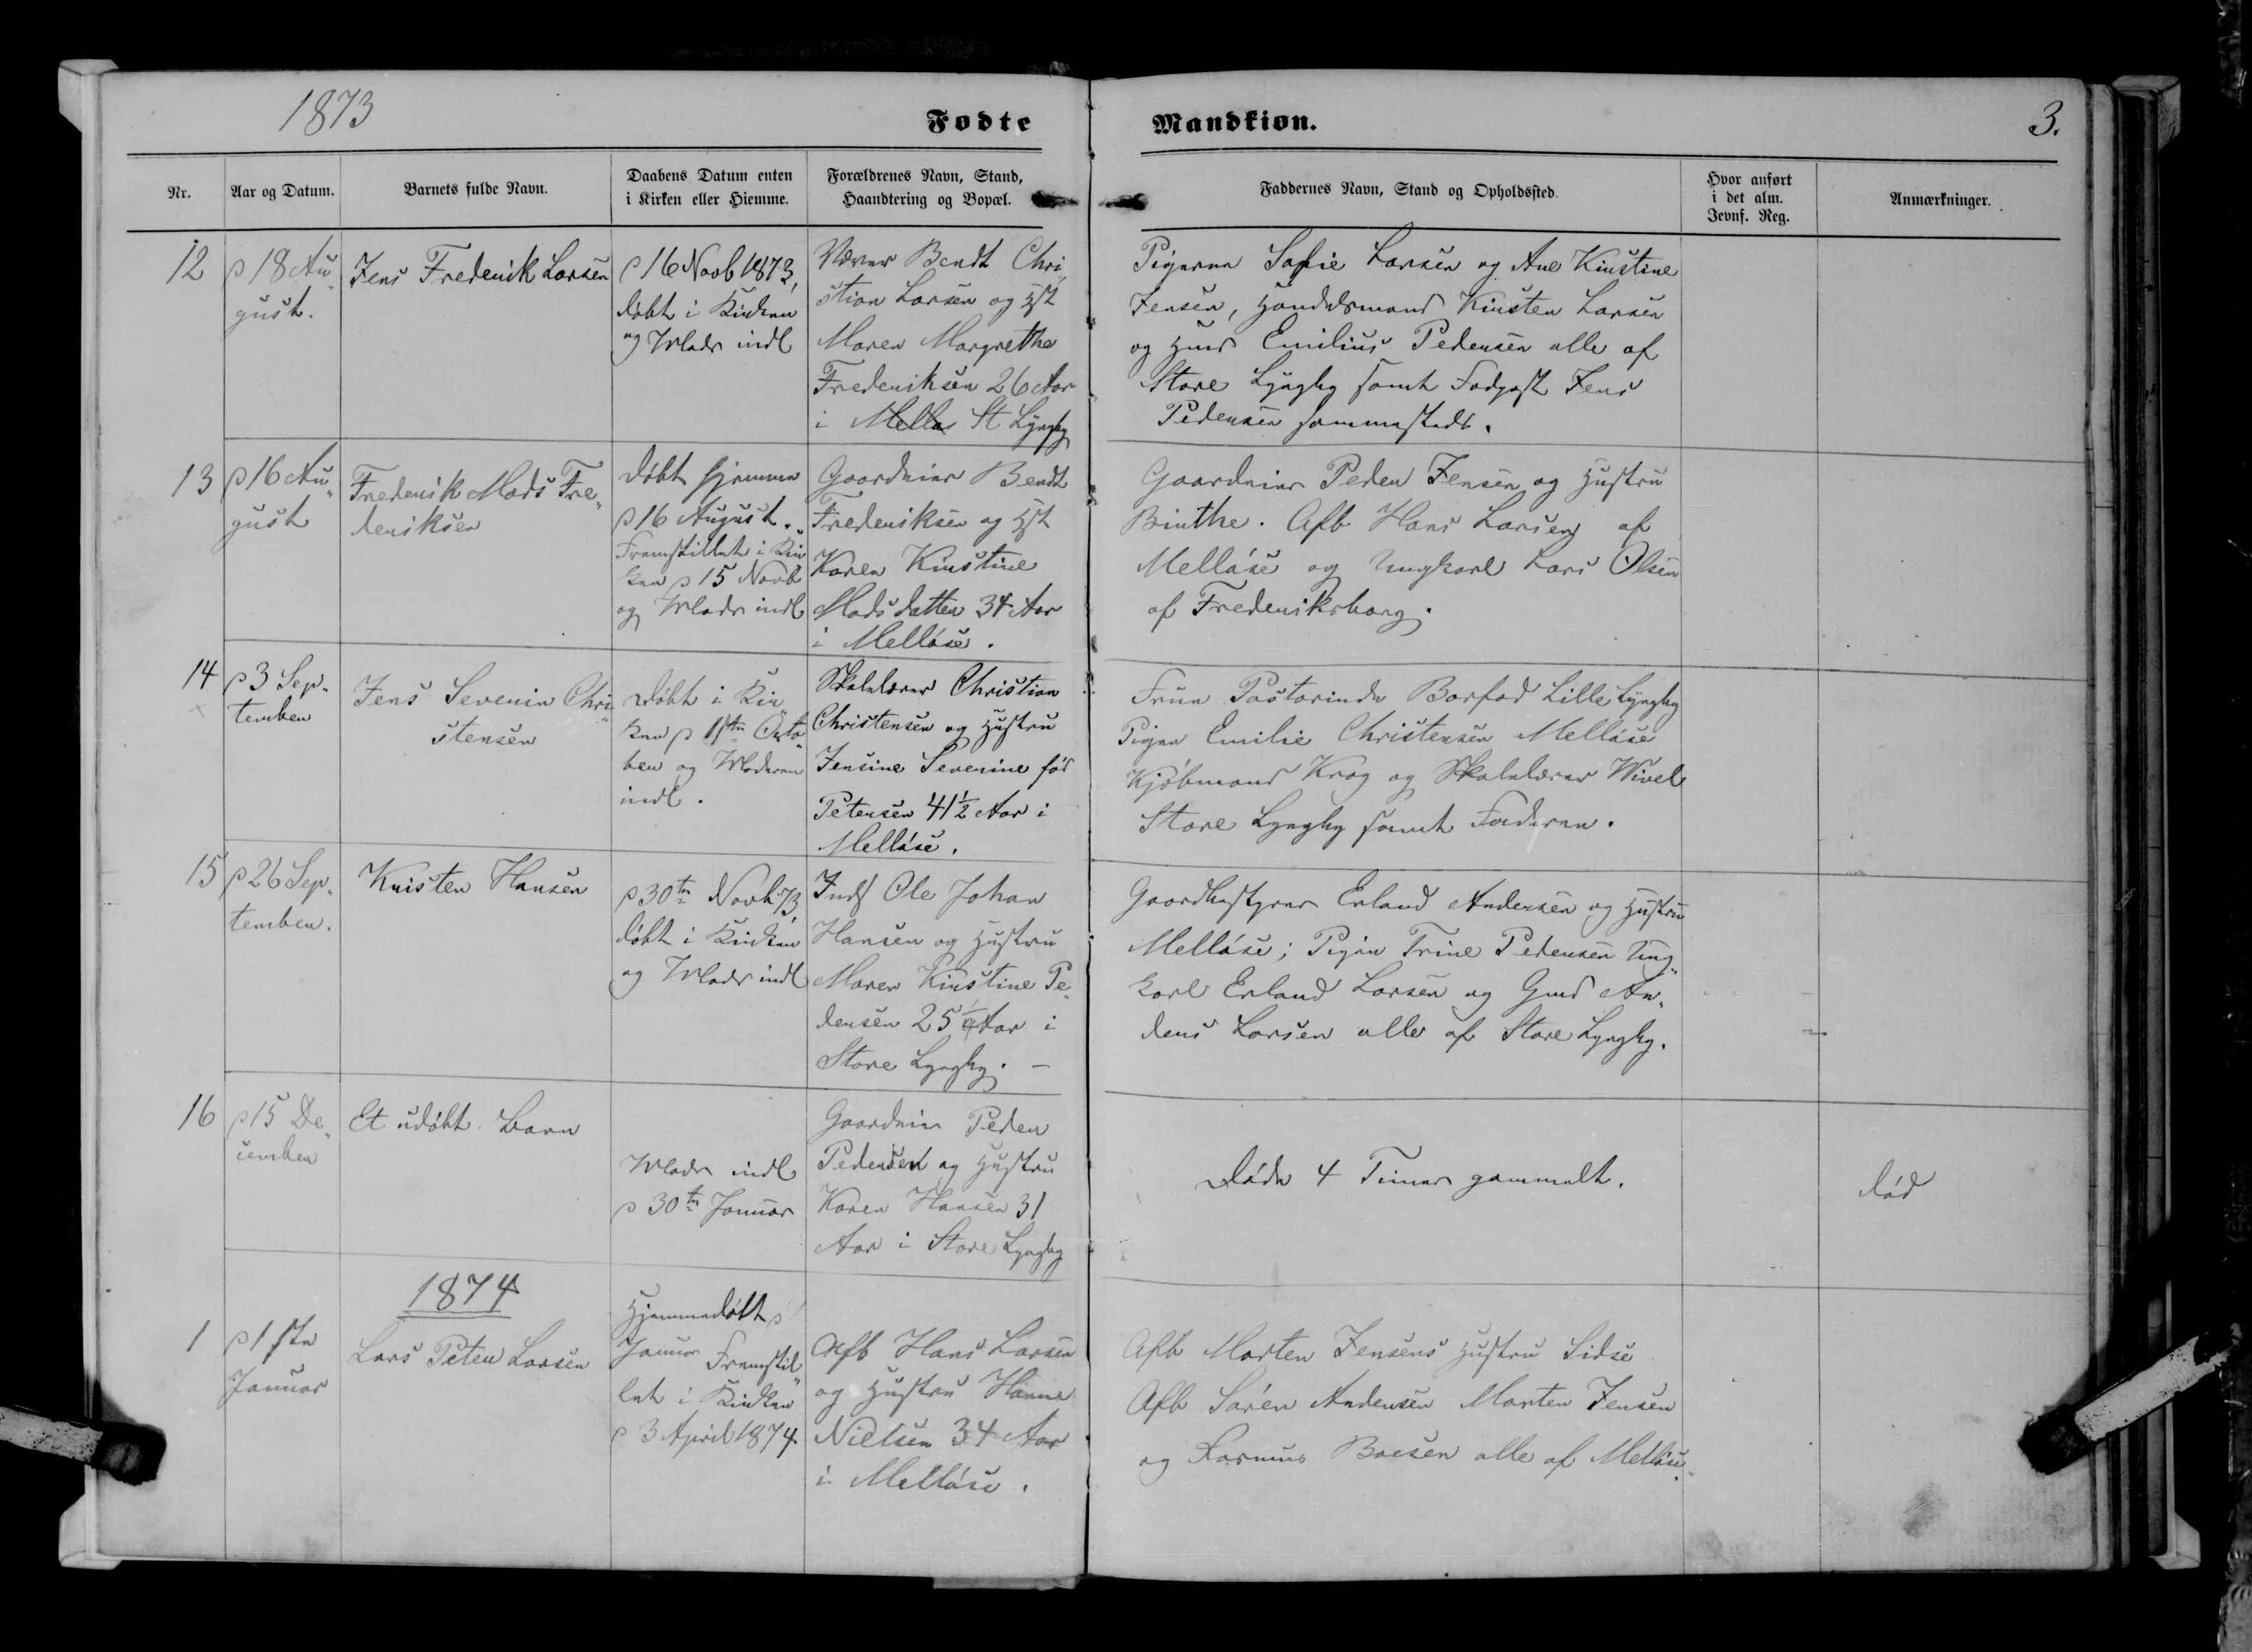 1873
Fødte
Mandkiøn.
3.
Nr.
Aar og Datum.
Barnets fulde Navn.
Daabens Datum enten
i Kirken eller Hiemme.
Forældrenes Navn, Stand,
Haandtering og Bopæl.
Faddernes Navn, Stand og Opholdssted.
Hvor anført
i det alm.
Jevnf. Reg.
Anmærkninger.
12
d 18 Au„
gust.
Jens Frederik Larsen
d 16 Novb 1873,
døbt i Kirken
og Moder indl
Væver Bendt Chri„
stian Larsen og Hst
Maren Margrethe
Frederiksen 26 Aar
i Melløs St Lÿngby
Pigerne Sofie Larsen og Ane Kirstine
Jensen, Handelsmand Kirsten Larsen
og Hmd Emilius Pedersen alle af
Store Lÿngby samt Fodpost Jens
Pedersen sammesteds.
13
d 16 Au„
gust
Frederik Mads Fre„
deriksen
Døbt hjemme
d 16 August.
Fremstillet i Kir„
ken d 15 Novb
og Moder indl
Gaardeier Bendt
Frederiksen og Hst
Karen Kirstine
Madsdatter 34 Aar
i Melløse.
Gaardeier Peder Jensen og Hustru
Birthe. Aftb Hans Larsen af
Melløse og Ungkarl Lars Olsen
af Frederiksborg.
14
d 3 Sep„
tember
Jens Severin Chri„
stensen
Døbt i Kir„
ken d 1ste Octo„
ber og Moderen
indl.
Skolelærer Christian
Christensen og Hustru
Jensine Severine fød
Petersen 41½ Aar i
Melløse.
Frue Pastorinde Barfod Lille Lÿngby
Pigen Emilie Christensen Melløse
Kjøbmand Krog og Skolelærer Wivel
Store Lyngby samt Faderen.
15
d 26 Sep„
tember.
Kristen Hansen
d 30te Novb 73,
døbt i Kirken
og Moder indl
Inds Ole Johan
Hansen og Hustru
Maren Kirstine Pe„
dersen 25¼ Aar i
Store Lyngby. –
Gaardbestyrer Erland Andersen og Hustru
Melløse; Pigen Trine Pedersen Ung„
karl Erland Larsen og Gmd An„
ders Larsen alle af Store Lyngby.
16
d 15 De„
cember
Et udøbt Barn
Moder indl
d 30te Januar
Gaardeier Peder
Pedersen og Hustru
Karen Hansen 31
Aar i Store Lyngby
Døde 4 Timer gammelt.
død
1874
1
d 1ste
Januar
Lars Peter Larsen
Hjemmedøbt d
Januar Fremstil„
let i Kirken
d 3 April 1874
Aftb Hans Larsen
og Hustru Hanne
Nielsen 34 Aar
i Melløse.
Aftb Morten Jensens Hustru Sidse
Aftb Søren Andersen Morten Jensen
og Rasmus Boesen alle af Melløse.